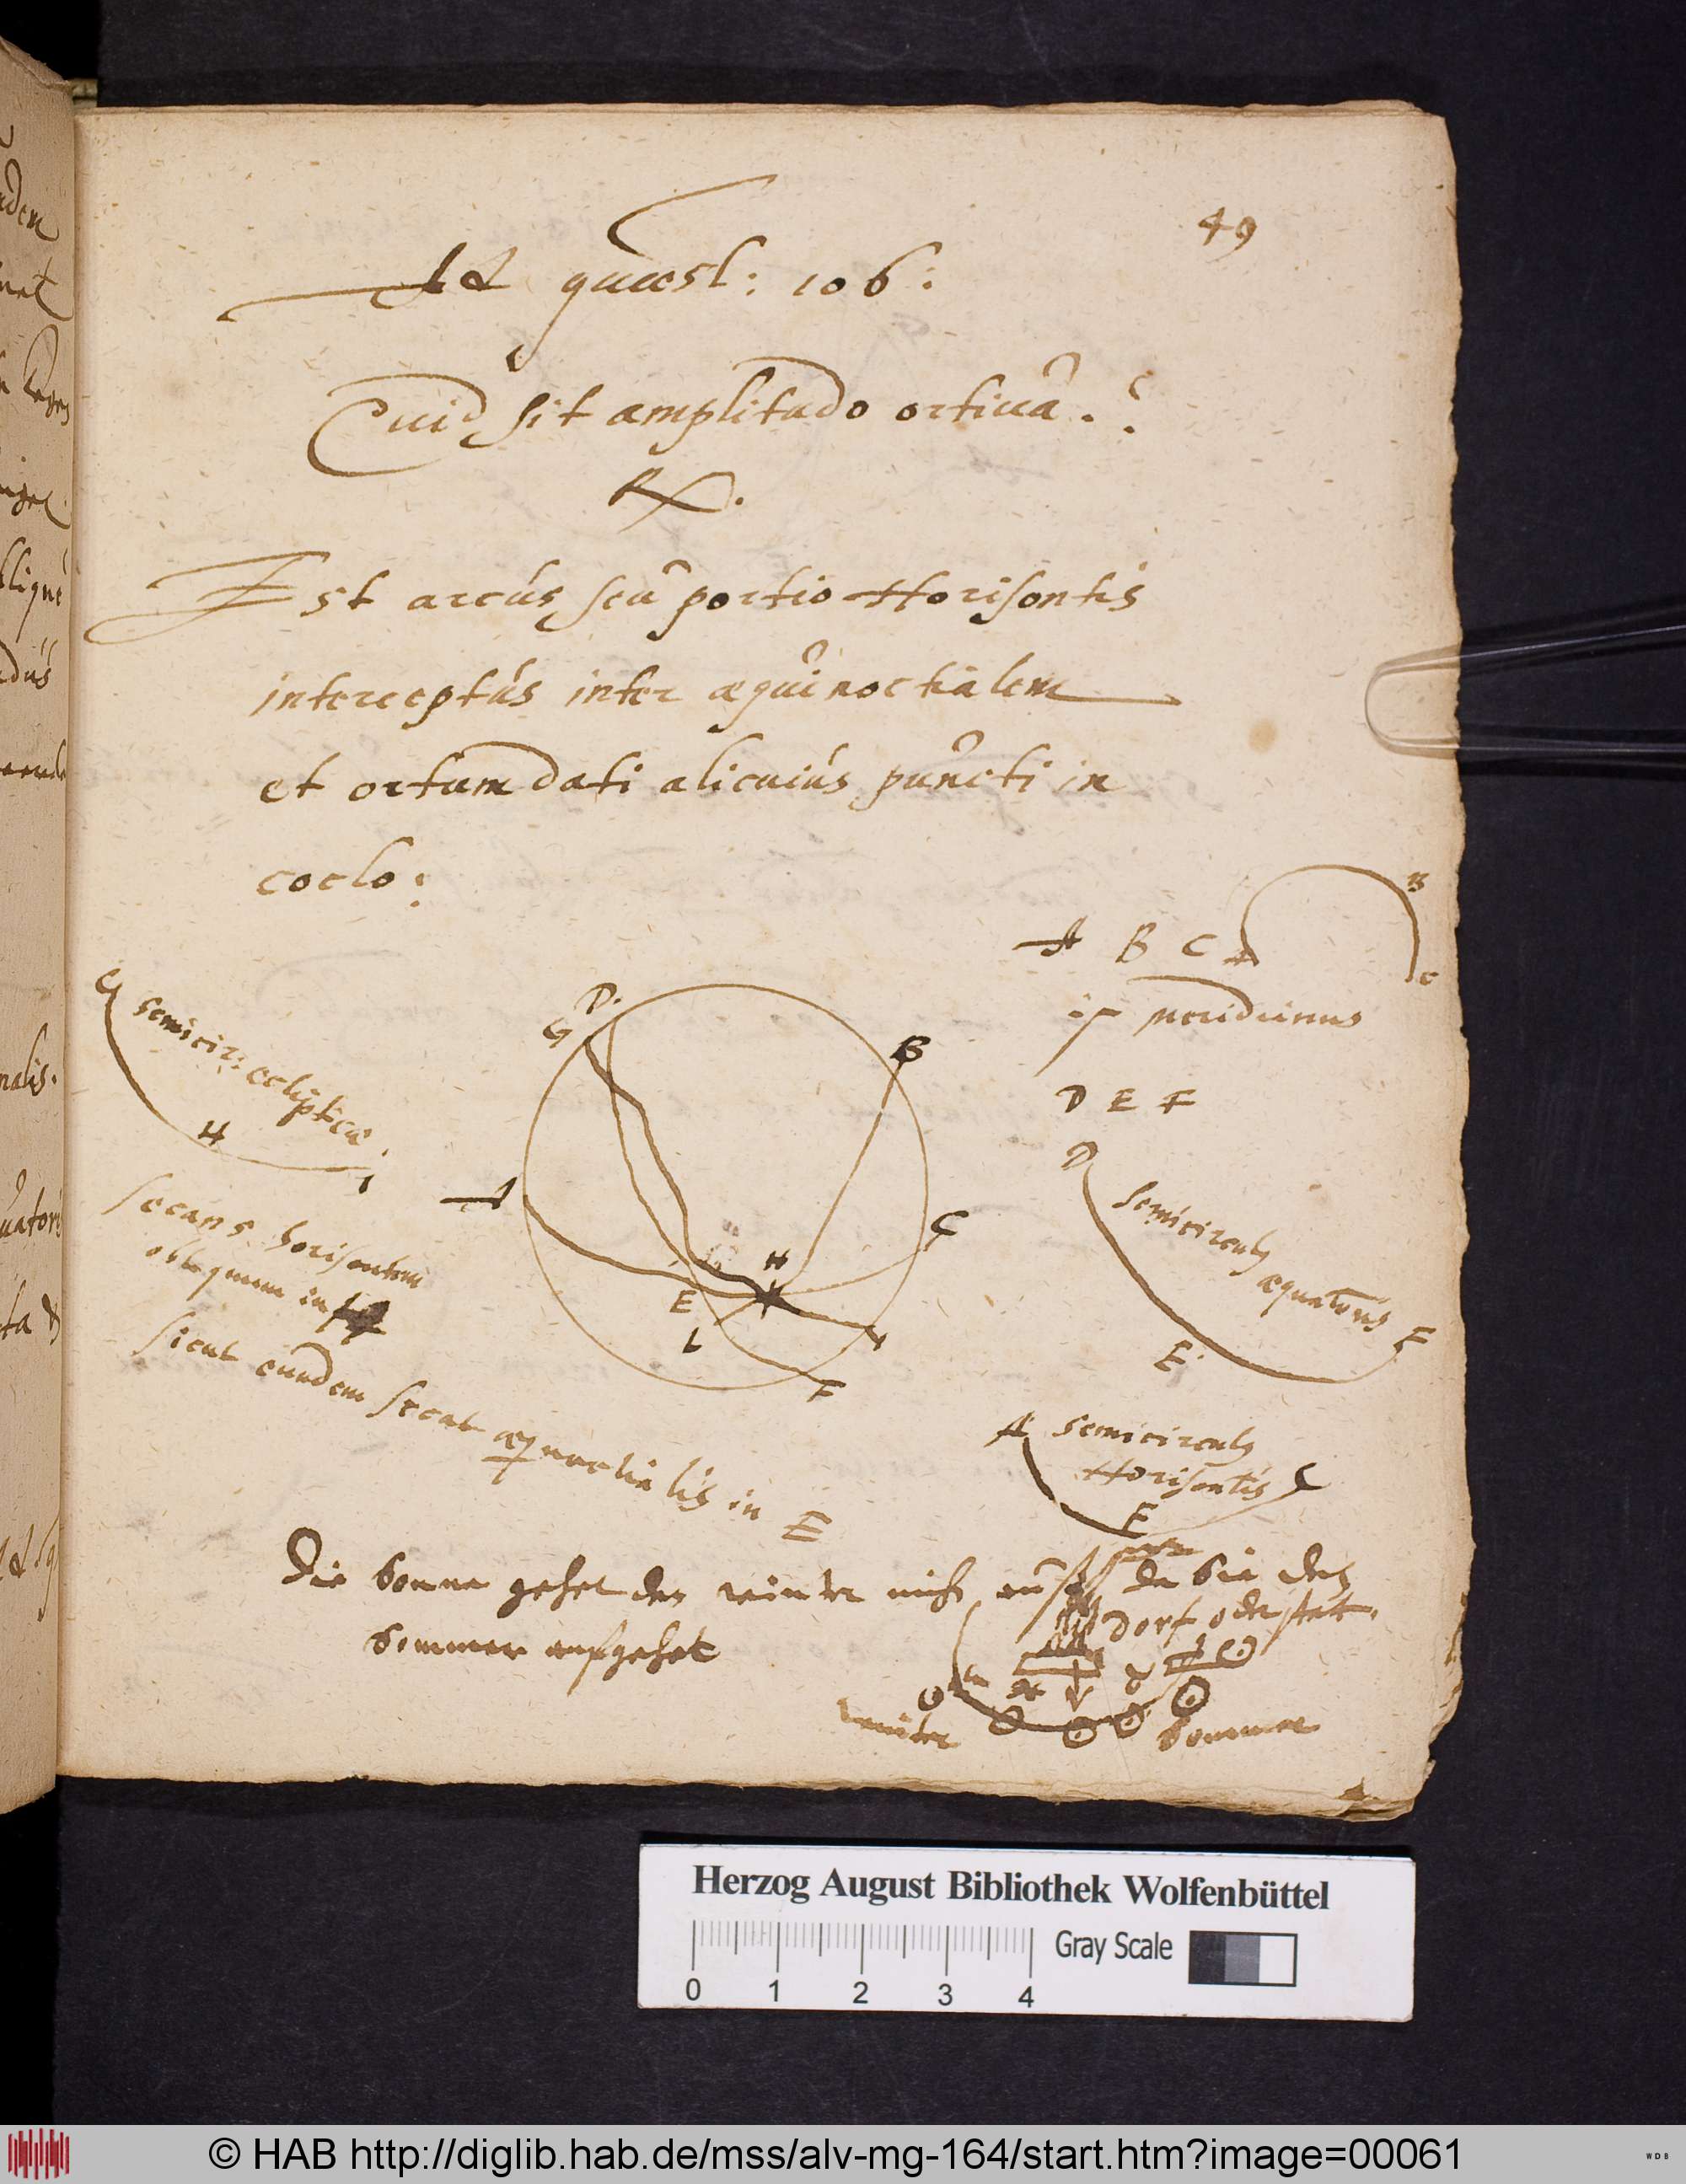 49
Ad quæst: 106:
Quid sit amplitudo ortiua.?
℞.
Est arcus seu portio Horisontis
interceptus inter æquinoctialem
et ortum dati alicuius puncti in
coelo:
A B C A B C
is meridianus
D E F
D semicirculus æquatoris F
E
G semicir: eclipticæ
H I
secans horisontem
obliquum in H
sicut eundem secat æquinoctialis in E
D.
G
B
A
C
H
E
L
I
F
A semicirculus
Horisontis C
E
Die Sonne gehet des winter nicht auff da sie des
Sommer aufgehet
Dorf oder statt.
winter
Sommer
Herzog August Bibliothek Wolfenbüttel
Gray Scale
0 1 2 3 4
© HAB http://diglib.hab.de/mss/alv-mg-164/start.htm?image=00061
WDB